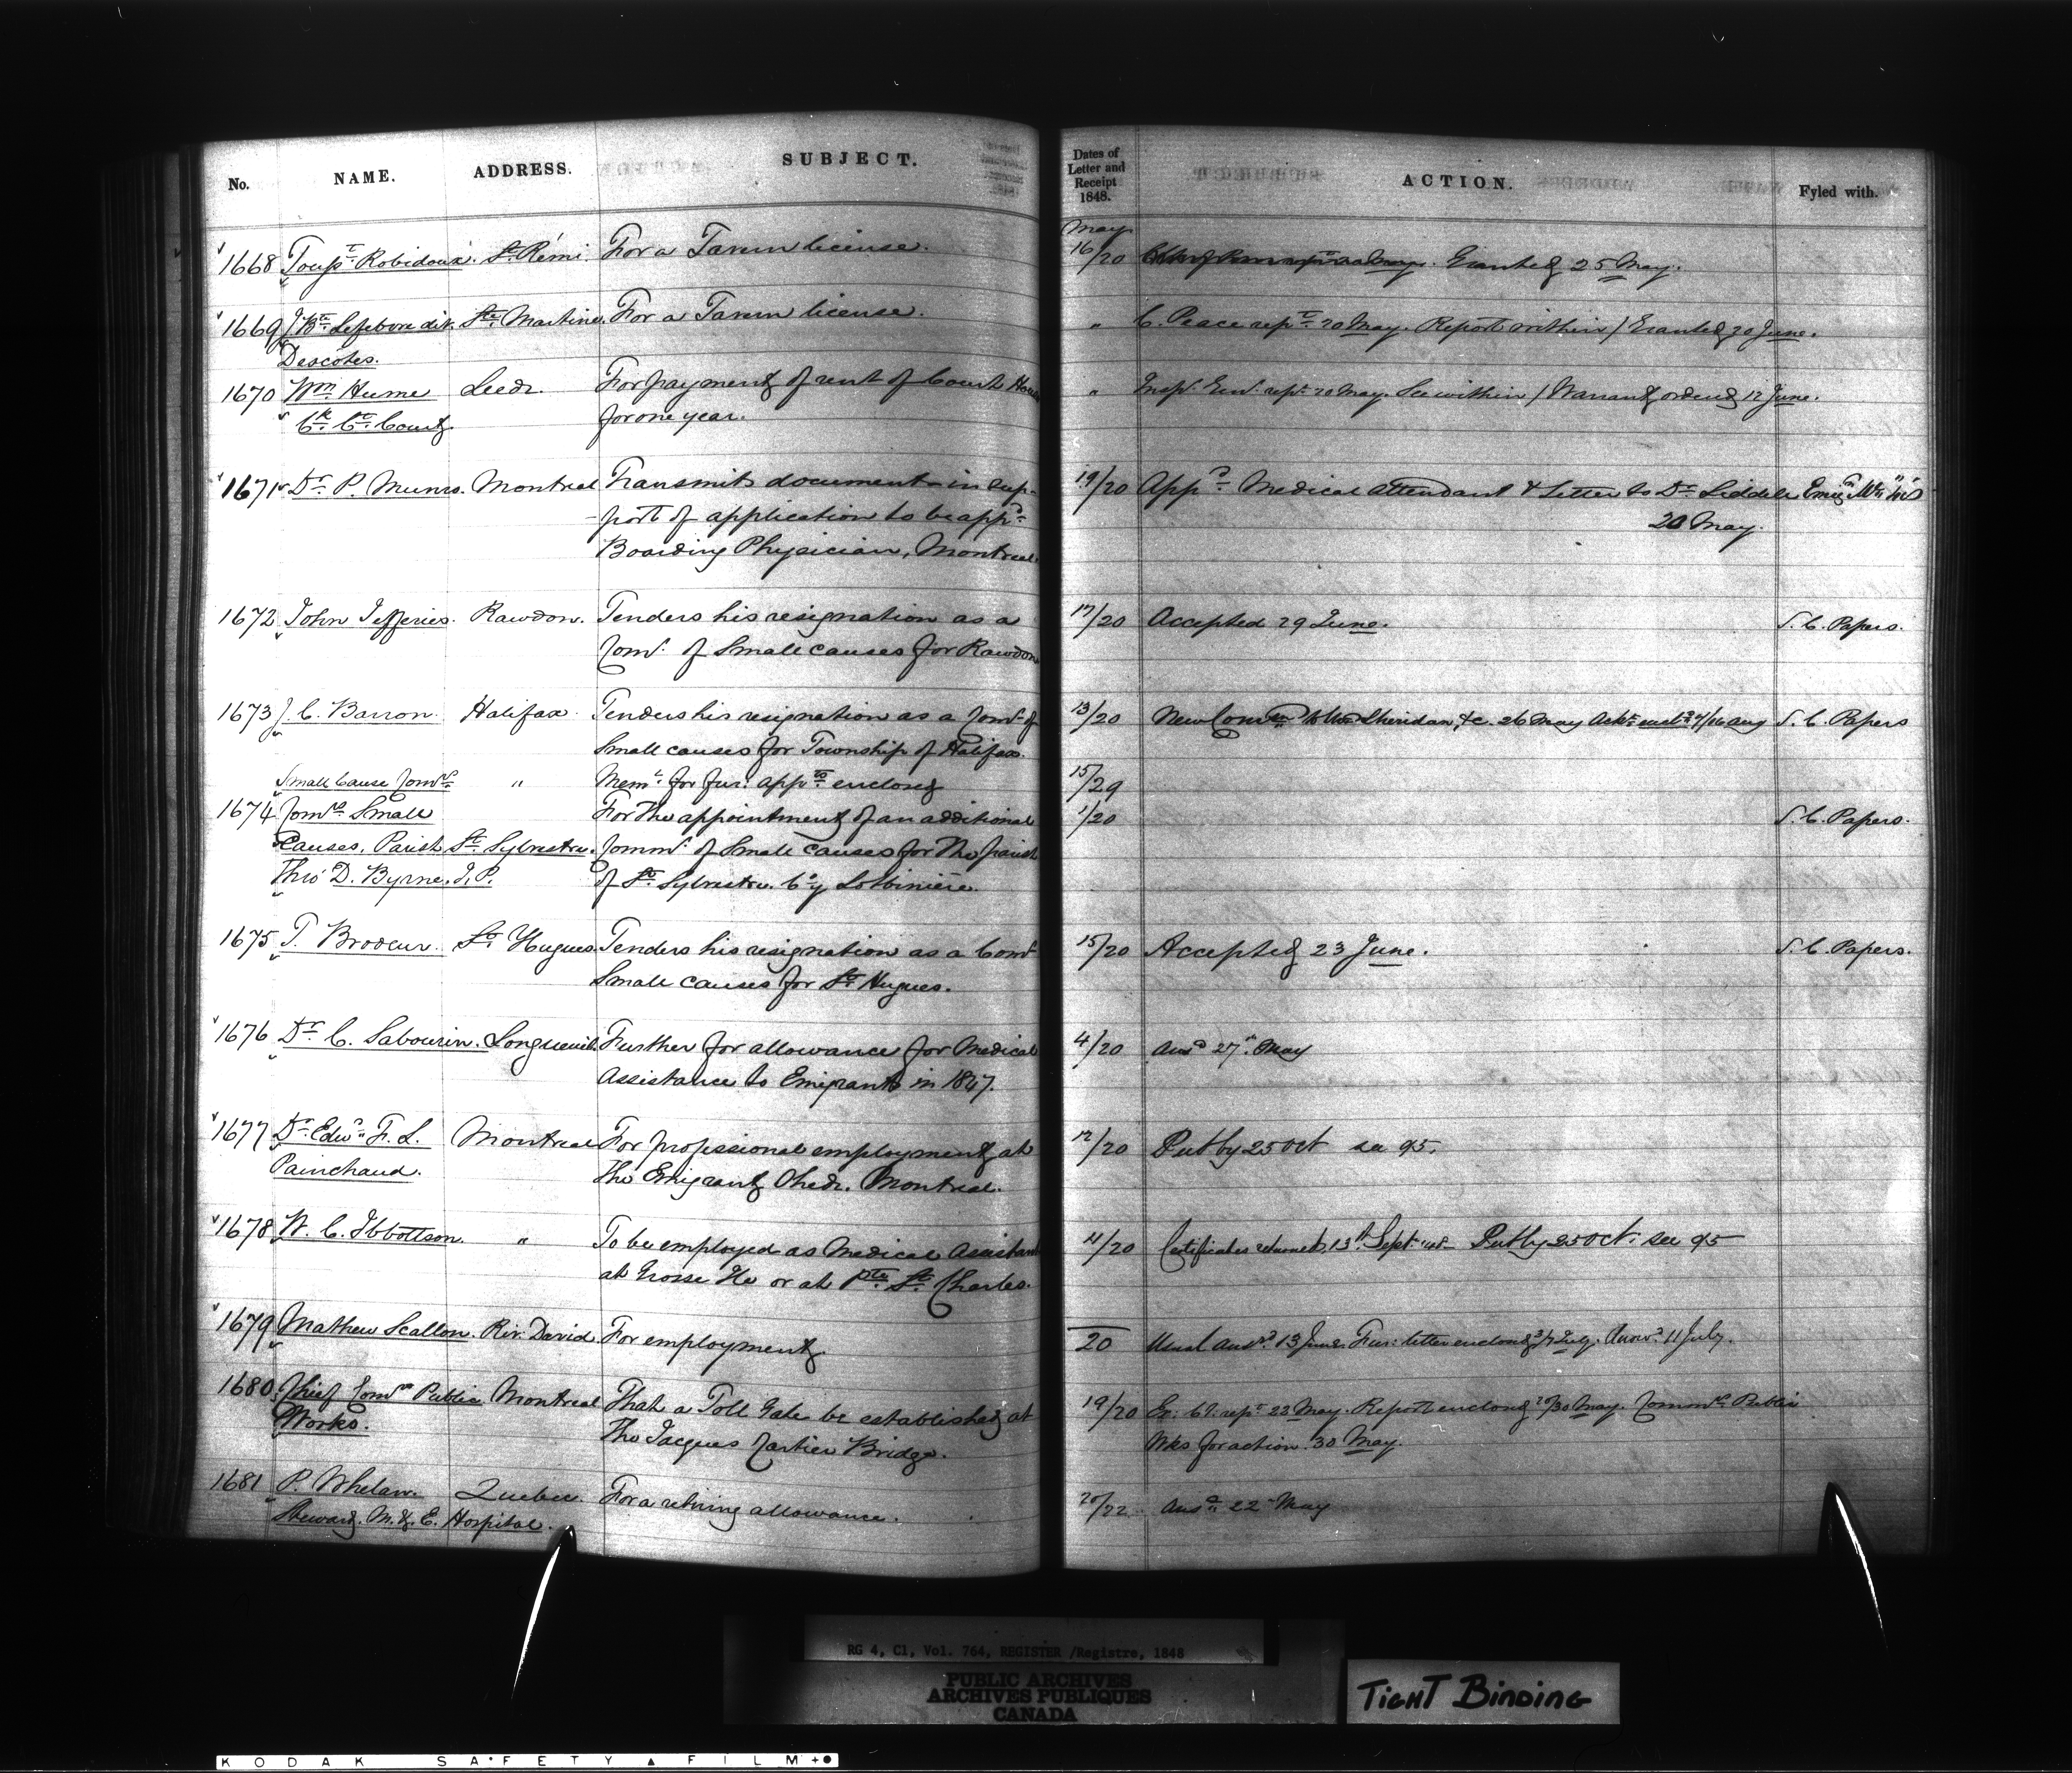 No. NAME. ADDRESS. SUBJECT.
Dates of Letter and Receipt 1848. ACTION. Fyled with.
May
1668 Tousst. Robidoux. St. Rémi. For a Tavern license. 16/20 Granted 25 May.
1669 J. Bte. Lefebvre dit. Ste. Martine. For a Tavern license. " C. Peace rept. 20 May. Report within / Granted 20 June.
Descôtes.
1670 Wm. Hume Leeds. For payment of rent of Court House " Insp. Genl. rept. 20 May. See within / Warrant ordered 12 June.
Ck. Ct. Court. for one year.
1671 Dr. P. Munro. Montreal Transmits documents in sup- 19/20 Appd. Medical attendant & Letter to Dr. Liddell
-port of application to be appd. 20 May.
Boarding Physician, Montreal.
1672 John Jefferies. Rawdon. Tenders his resignation as a 17/20 Accepted 29 June. S. C. Papers.
Comr. of Small causes for Rawdon
1673 J. C. Barron. Halifax. Tenders his resignation as a Comr. of 13/20 New Comn. to Wm. Sheridan &c. 26 May S. C. Papers
Small causes for Township of Halifax.
Small Cause Comrs. " Meml. for fur. appts. enclosed 15/29
1674 Comrs. Small For the appointment of an additional 1/20 S. C. Papers.
Causes, Parish St. Sylvestre. Commr. of Small Causes for the parish
Thos. D. Byrne. J. P. of St. Sylvestre. Cy. Lotbinière.
1675 T. Brodeur. St. Hugues. Tenders his resignation as a Comr. 15/20 Accepted 23 June. S. C. Papers.
Small causes for St. Hugues.
1676 Dr. C. Sabourin. Longueuil. Further for allowance for Medical 4/20 Ansd. 27th. May
Assistance to Emigrants in 1847.
1677 Dr. Edwd. F. L. Montreal For professional employment at 12/20 Put by 25 Oct see 95.
Painchaud. the Emigrant Sheds. Montreal.
1678 W. C. Ibbottson. " To be employed as Medical Assistant 11/20 Certificates returned. 13th. Sept. '48 - Put by 25 Oct. see 95
at Grosse Ile or at Pte. St. Charles.
1679 Mathew Scallon. Riv. David. For employment. 20 Usual ansr. 13 June. Fur: letter enclosed 3/7 July. Answd. 11 July.
1680 Chief Comr. Public Montreal That a Toll Gate be established at 19/20 Ex: Cl. rept. 22 May. Report enclosed 29/30 May. Commrs. Public
Works. the Jacques Cartier Bridge. Wks for action. 30 May.
1681 P. Whelan. Quebec. For a retiring allowance. 20/22 Ansd. 22 May
Steward. M. & E. Hospital.
RG 4, C1, Vol. 764, REGISTER /Registre, 1848
PUBLIC ARCHIVES
ARCHIVES PUBLIQUES
CANADA
TIGHT BINDING
KODAK SAFETY FILM